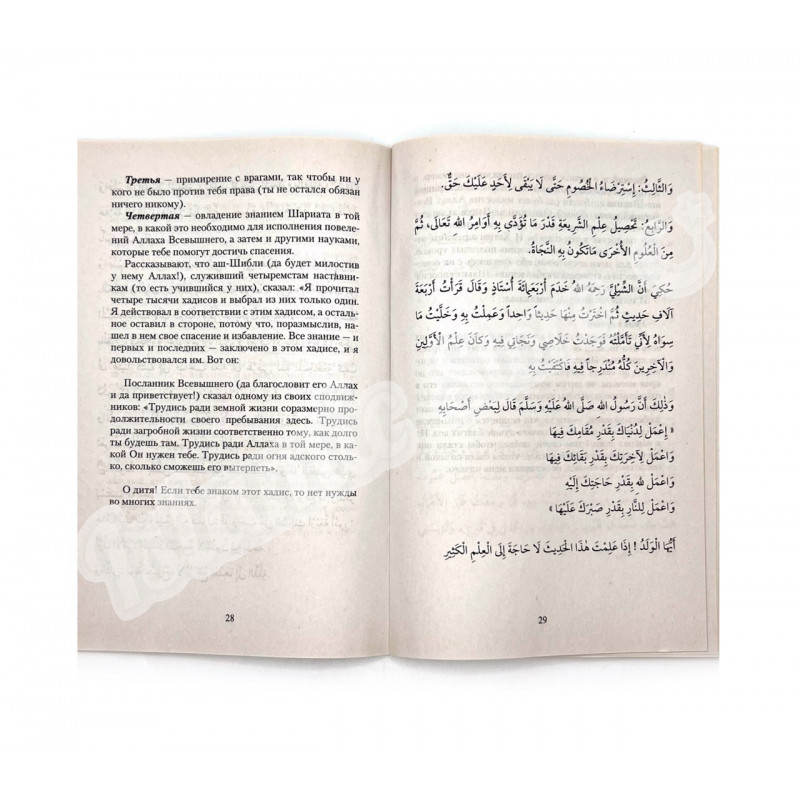 Третья — примирение с врагами, так чтобы ни у
кого не было против тебя права (ты не остался обязан
ничего никому).
Четвертая — овладение знанием Шариата в той
мере, в какой это необходимо для исполнения повеле-
ний Аллаха Всевышнего, а затем и другими науками,
которые тебе помогут достичь спасения.
Рассказывают, что аш-Шибли (да будет милостив
у нему Аллах!), служивший четыремстам наставни-
кам (то есть учившийся у них), сказал: «Я прочитал
четыре тысячи хадисов и выбрал из них только один.
Я действовал в соответствии с этим хадисом, а осталь-
ное оставил в стороне, потому что, поразмыслив, на-
шел в нем свое спасение и избавление. Все знание — и
первых и последних — заключено в этом хадисе, и я
довольствовался им. Вот он:
Посланник Всевышнего (да благословит его Аллах
и да приветствует!) сказал одному из своих сподвиж-
ников: «Трудись ради земной жизни соразмерно про-
должительности своего пребывания здесь. Трудись
ради загробной жизни соответственно тому, как долго
ты будешь там. Трудись ради Аллаха в той мере, в ка-
кой Он нужен тебе. Трудись ради огня адского столь-
ко, сколько сможешь его вытерпеть».
О дитя! Если тебе знаком этот хадис, то нет нужды
во многих знаниях.
28
وَالثَّالِثُ: إِسْتِرْضَاءُ الْخُصُومِ حَتَّى لَا يَبْقَى لِأَحَدٍ عَلَيْكَ حَقٌّ.
وَالرَّابِعُ: تَحْصِيلُ عِلْمِ الشَّرِيعَةِ قَدْرَ مَا تُؤَدِّي بِهِ أَوَامِرُ اللهِ تَعَالَى، ثُمَّ
مِنَ الْعُلُومِ الْأُخْرَى مَاتَكُونُ بِهِ النَّجَاةُ.
حُكِيَ أَنَّ الشِّبْلِيَّ رَحِمَهُ اللهُ خَدَمَ أَرْبَعَمِائَةِ أُسْتَاذٍ وَقَالَ قَرَأْتُ أَرْبَعَةَ
آلَافِ حَدِيثٍ ثُمَّ اخْتَرْتُ مِنْهَا حَدِيثاً وَاحِداً وَعَمِلْتُ بِهِ وَخَلَّيْتُ مَا
سِوَاهُ لِأَنِّي تَأَمَّلْتُهُ فَوَجَدْتُ خَلَاصِي وَنَجَاتِي فِيهِ وَكَانَ عِلْمُ الْأَوَّلِينَ
وَالْآخِرِينَ كُلُّهُ مُنْدَرِجاً فِيهِ فَاكْتَفَيْتُ بِهِ
وَذَلِكَ أَنَّ رَسُولُ اللهِ صَلَّى اللهُ عَلَيْهِ وَسَلَّمَ قَالَ لِبَعْضِ أَصْحَابِهِ
« إِعْمَلْ لِدُنْيَاكَ بِقَدْرِ مُقَامِكَ فِيهَا
وَاعْمَلْ لِآخِرَتِكَ بِقَدْرِ بَقَائِكَ فِيهَا
وَاعْمَلْ لِلهِ بِقَدْرِ حَاجَتِكَ إِلَيْهِ
وَاعْمَلْ لِلنَّارِ بِقَدْرِ صَبْرِكَ عَلَيْهَا »
أَيُّهَا الْوَلَدُ ! إِذَا عَلِمْتَ هَذَا الْحَدِيثَ لَا حَاجَةَ إِلَى الْعِلْمِ الْكَثِيرِ
29